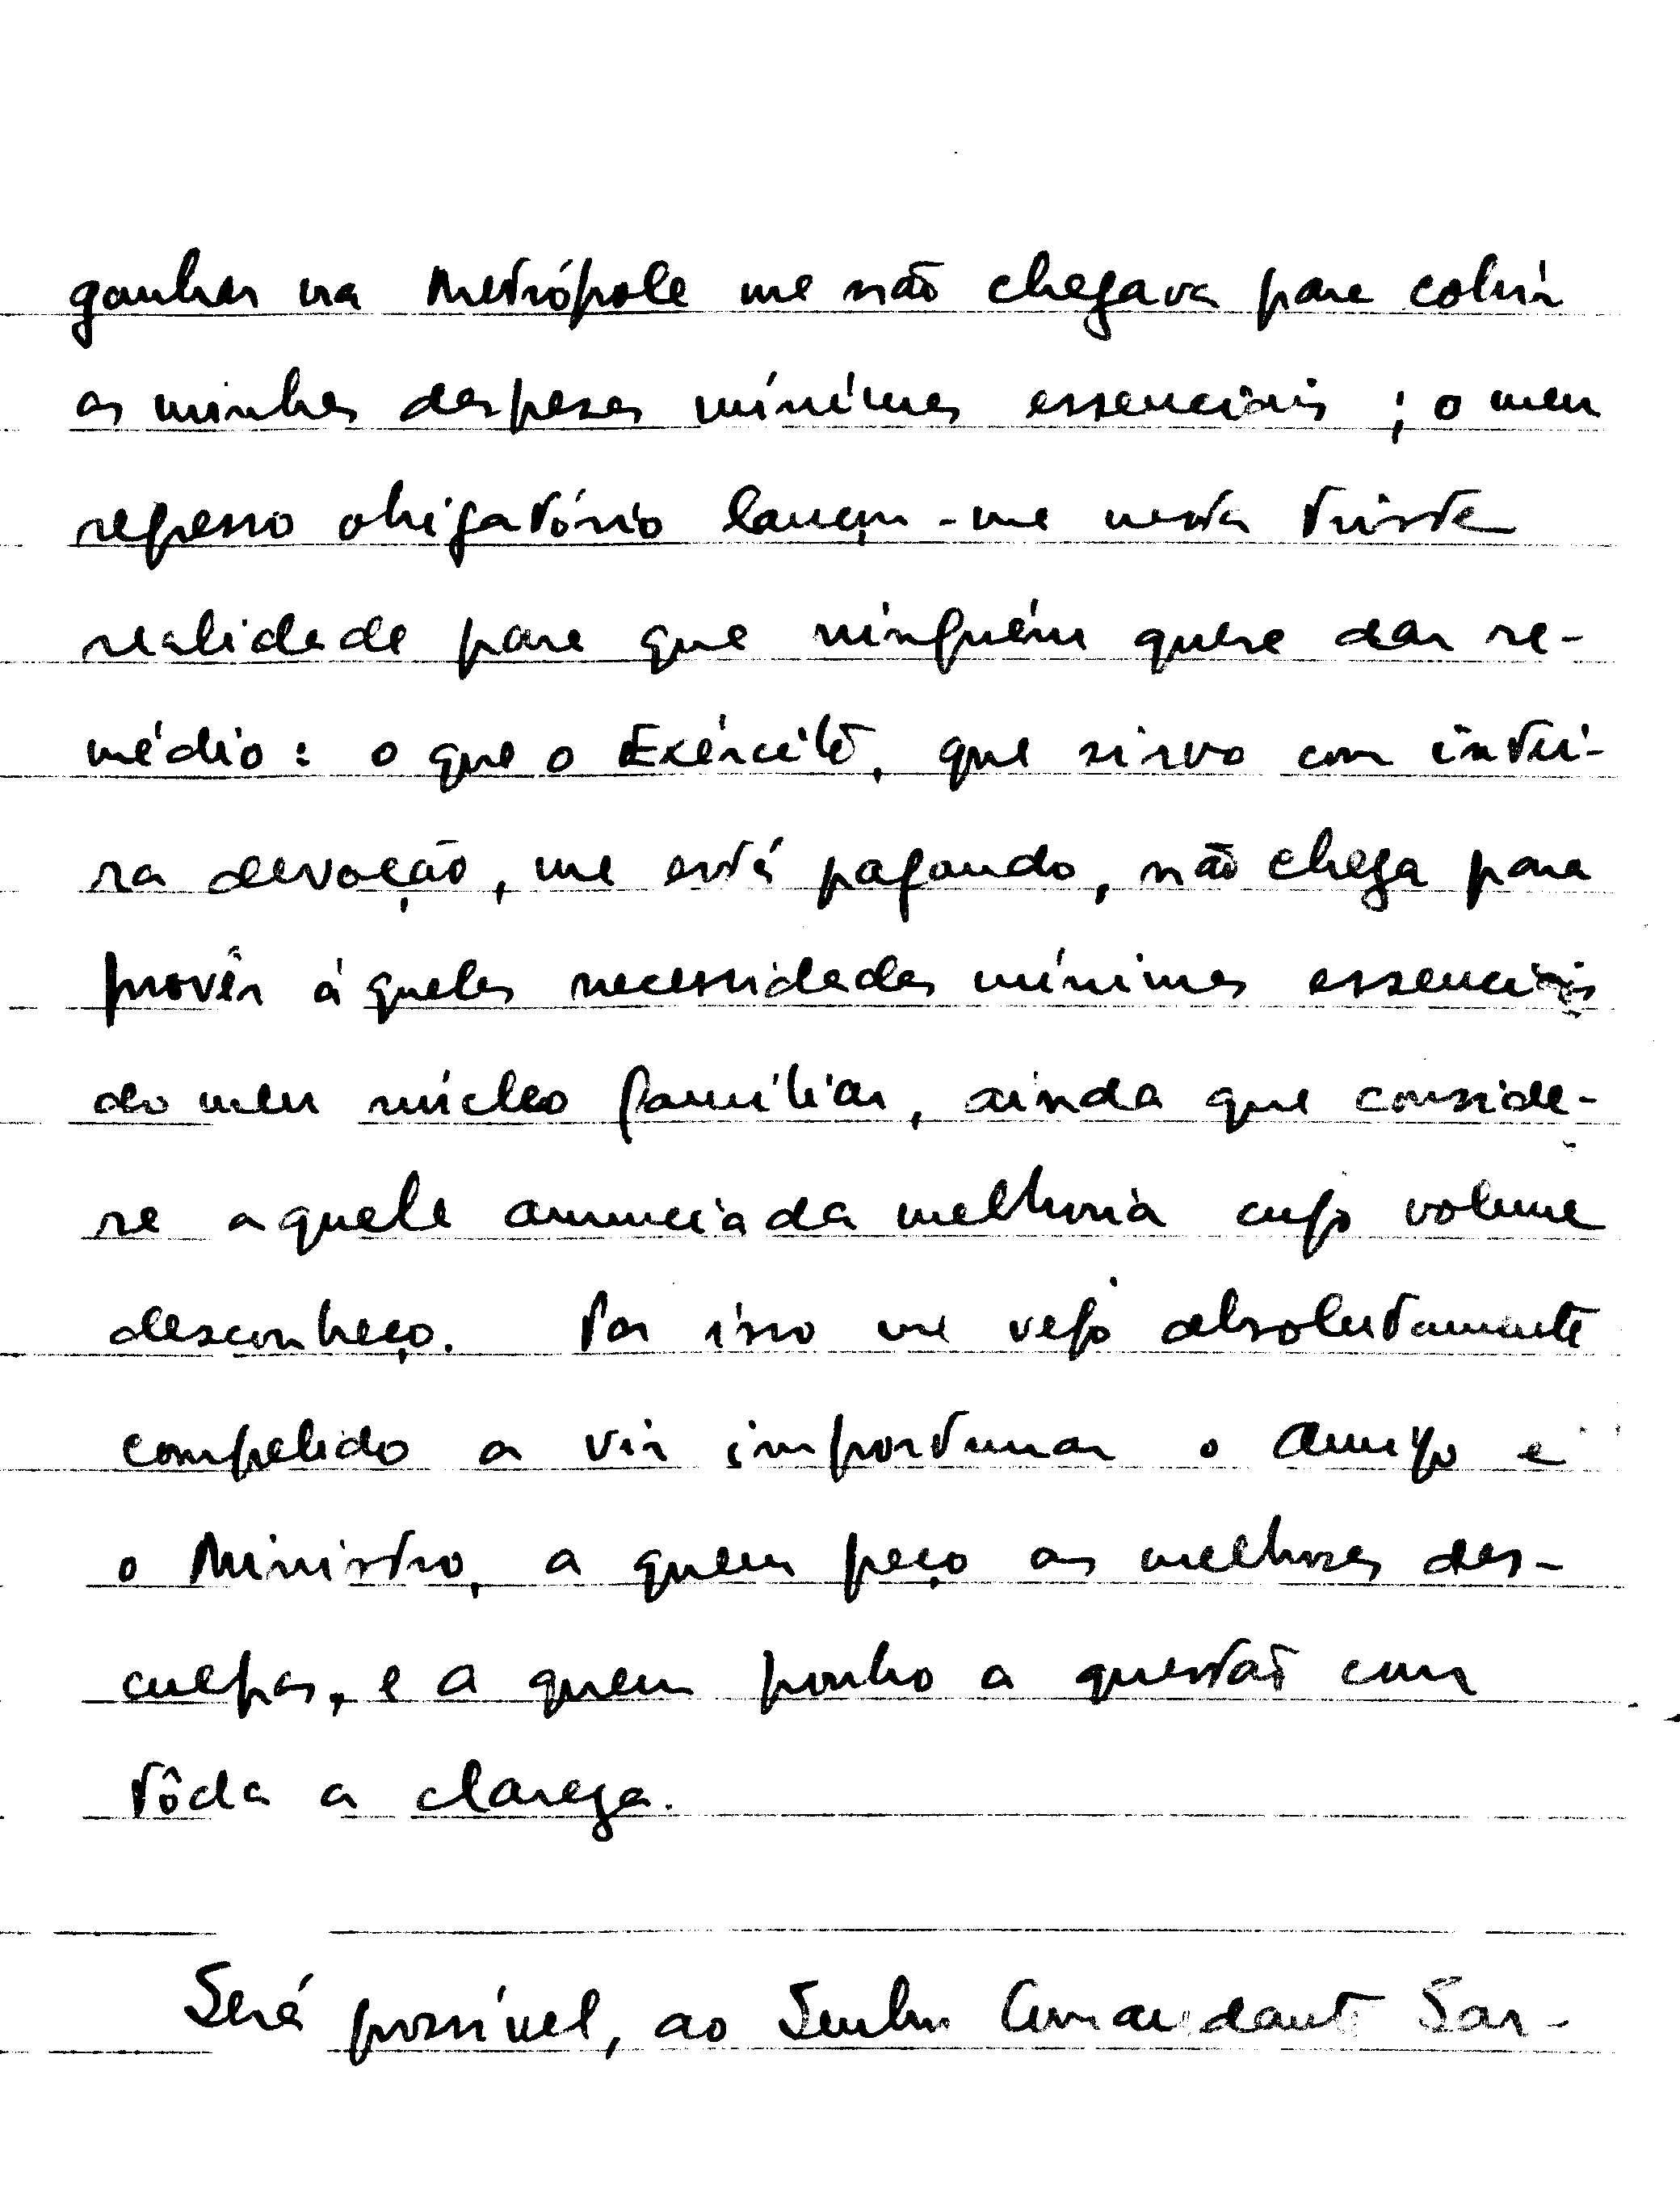 ganhar na Metrópole me não chegava para cobrir
as minhas despesas mínimas essenciais; o meu
regresso obrigatório lançou-me nesta triste
realidade para que ninguém quere dar re-
médio: o que o Exército, que sirvo com intei-
ra devoção, me está pagando, não chega para
provêr àquelas necessidades mínimas essenciais
do meu núcleo familiar, ainda que conside-
re aquela anunciada melhoria cujo volume
desconheço. Por isso me vejo absolutamente
compelido a vir importunar o Amigo e
o Ministro, a quem peço as melhores des-
culpas, e a quem ponho a questão com
tôda a clareza.
Será possível, ao Senhor Comandante Sar-